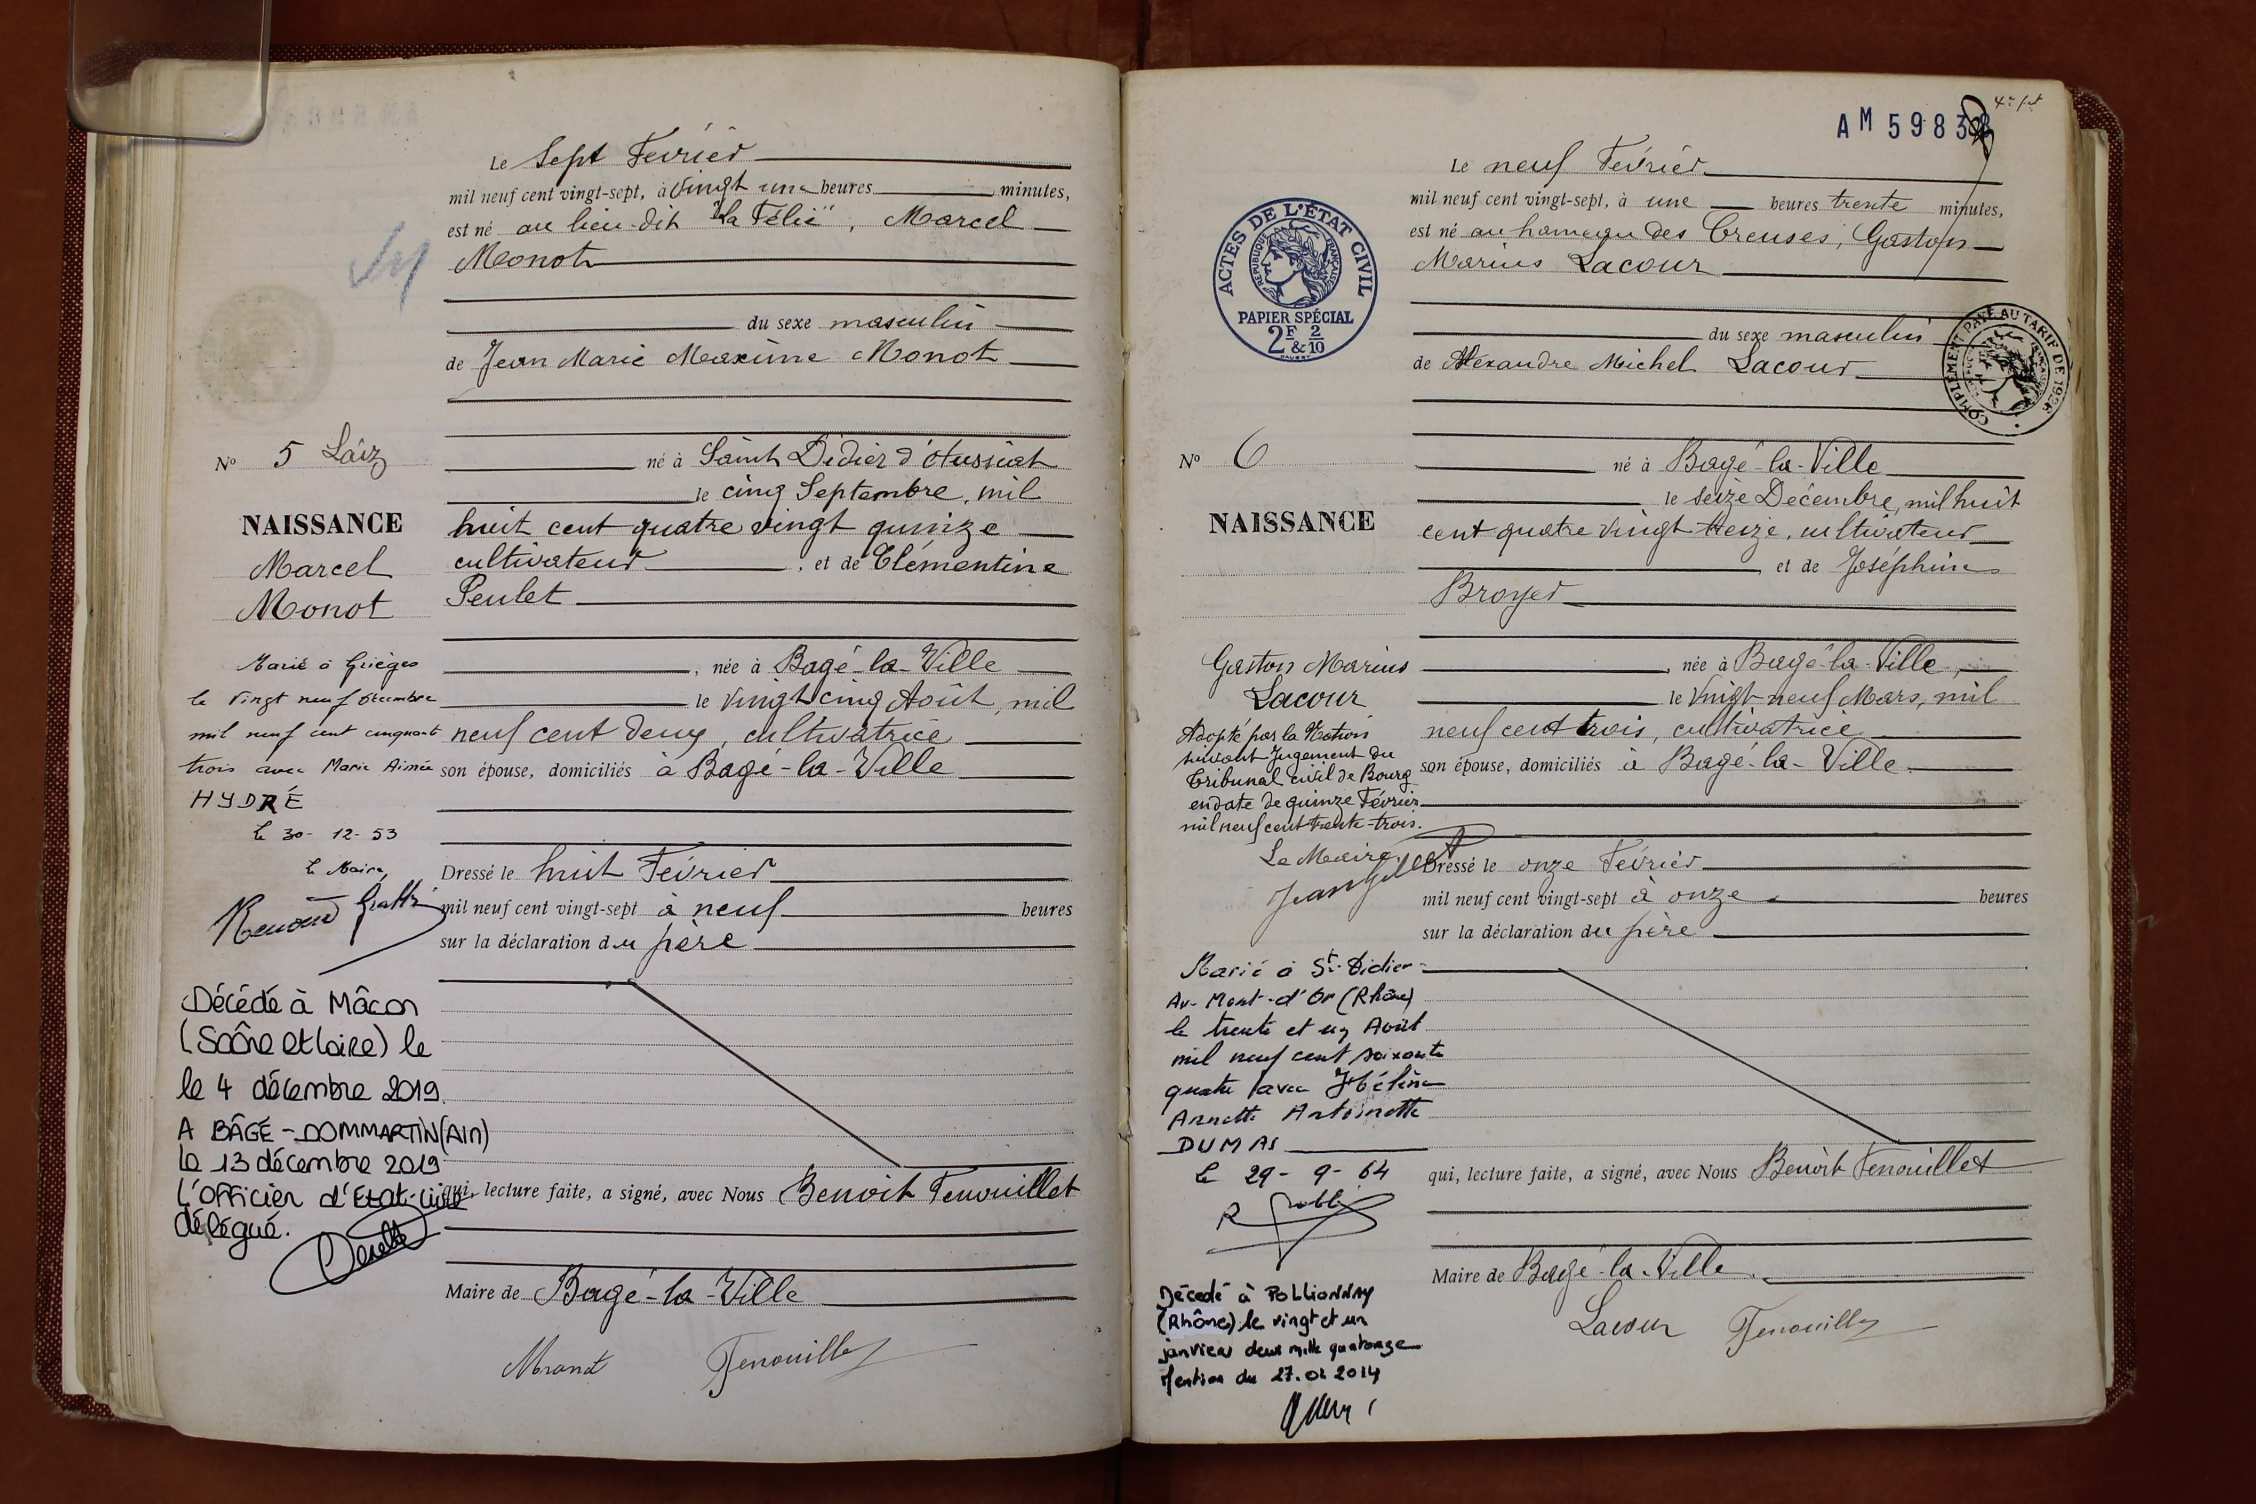 Le Sept Février
mil neuf cent vingt-sept, à vingt une heures minutes,
est né au lieu-dit "la Félie", Marcel
Monot
du sexe masculin
de Jean Marie Maxime Monot
N° 5 Laiz
né à Saint Didier d'Aussiat
le cinq Septembre, mil
NAISSANCE
huit cent quatre vingt quinze
Marcel
cultivateur, et de Clémentine
Monot
Peulet
Marié à Grièges
née à Bagé-la-Ville
le vingt neuf décembre
le vingt cinq Août, mil
mil neuf cent cinquante
neuf cent deux, cultivatrice
trois avec Marie Aimée
son épouse, domiciliés à Bagé-la-Ville
HYDRÉ
le 30-12-53
le Maire,
Dressé le huit Février
mil neuf cent vingt-sept à neuf heures
sur la déclaration du père
Décédé à Mâcon
(Saône et Loire) le
le 4 décembre 2019.
A BÂGÉ-DOMMARTIN (AIN)
Le 13 décembre 2019
L'Officier d'Etat-civil
délégué.
qui, lecture faite, a signé, avec Nous Benoit Fenouillet
Maire de Bagé-la-Ville
Monot Fenouillet
4e ft
AM 5983
Le neuf Février
mil neuf cent vingt-sept, à une heures trente minutes,
est né au hameau des Creuses, Gaston
Marius Lacour
ACTES DE L'ÉTAT CIVIL
RÉPUBLIQUE FRANÇAISE
PAPIER SPÉCIAL
2F & 2/10
du sexe masculin
COMPLÉMENT PAYÉ AU TARIF DE 1926
de Alexandre Michel Lacour
N° 6
né à Bagé-la-Ville
le seize Décembre, mil huit
NAISSANCE
cent quatre vingt treize, cultivateur
et de Joséphine
Broyer
Gaston Marius
née à Bagé-la-Ville,
Lacour
le vingt-neuf Mars, mil
Adopté par la Nation
neuf cent trois, cultivatrice
suivant Jugement du
Tribunal civil de Bourg
son épouse, domiciliés à Bagé-la-Ville
en date de quinze Février
mil neuf cent trente-trois.
Le Maire
Dressé le onze Février
mil neuf cent vingt-sept à onze heures
sur la déclaration du père
Marié à St-Didier-
Au-Mont-d'Or (Rhône)
le trente et un Août
mil neuf cent soixante
quatre avec Hélène
Annette Antoinette
DUMAS
le 29-9-64
qui, lecture faite, a signé, avec Nous Benoit Fenouillet
Maire de Bagé-la-Ville
Lacour Fenouillet
Décédé à POLLIONNAY
(Rhône) le vingt et un
janvier deux mille quatorze
Mention du 27.01.2014